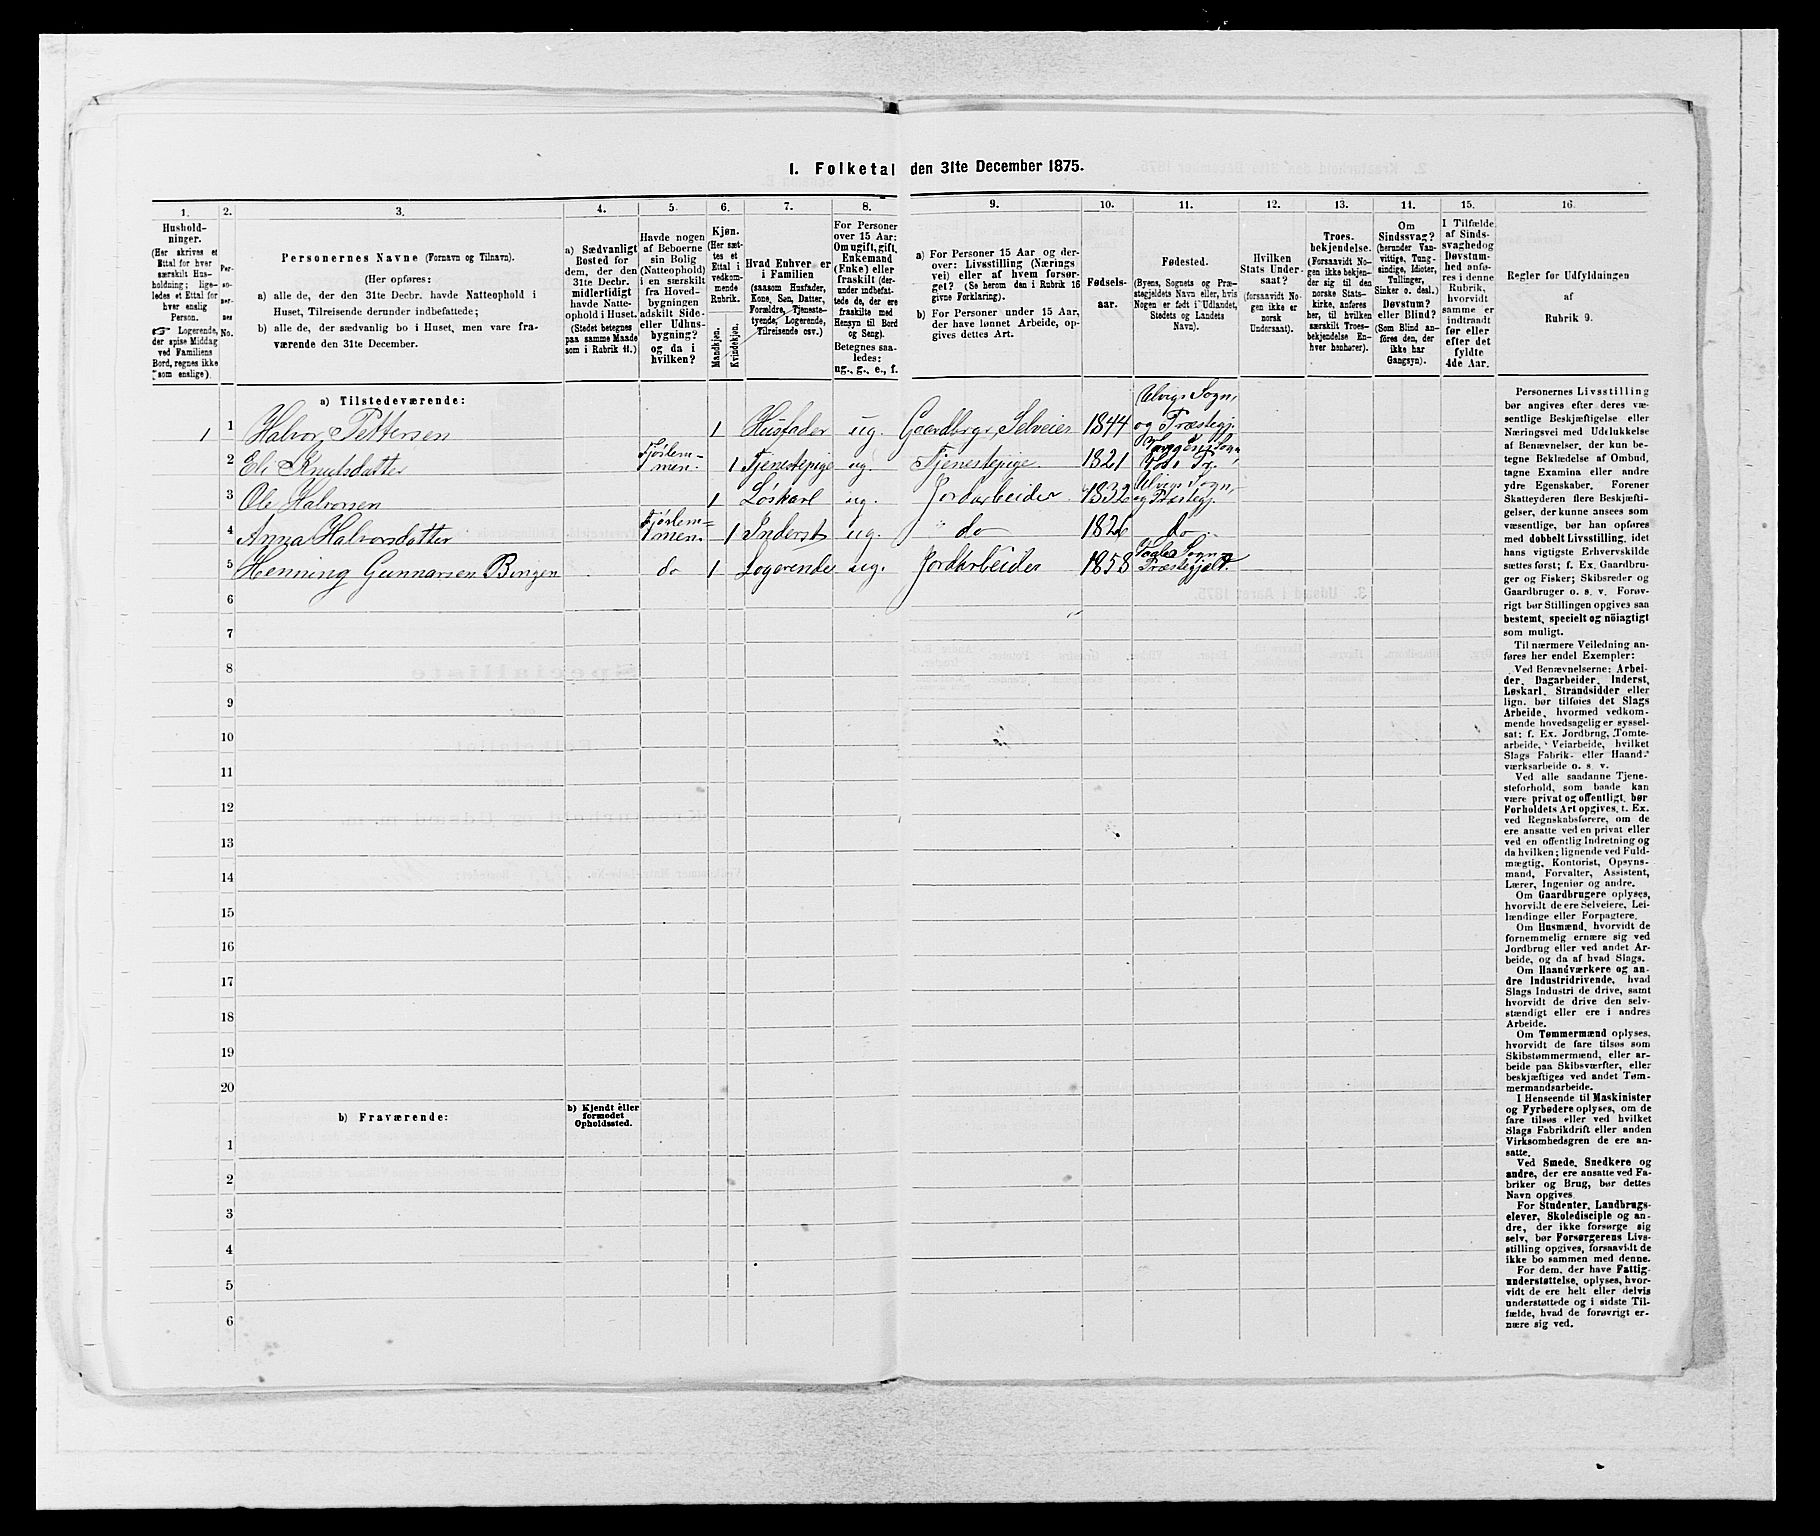 1. Folketal den 31te December 1875.
1.
Hushold-
ninger.
(Her skrives et
Ettal for hver
særskilt Hus-
holdning; lige-
ledes et Ettal for
hver enslig
Person.
☞ Logerende,
der spise Middag
ved Familiens
Bord, regnes ikke
som enslige).
2.
Per-
so-
ner-
nes
No.
3.
Personernes Navne (Fornavn og Tilnavn).
(Her opføres:
a) alle de, der den 31te Decbr. havde Natteophold i
Huset, Tilreisende derunder indbefattede;
b) alle de, der sædvanlig bo i Huset, men vare fra-
værende den 31te December.
4.
a) Sædvanligt
Bosted for
dem, der den
31te Decbr.
midlertidigt
havde Natte-
ophold i Huset.
(Stedet betegnes
paa samme Maade
som i Rubrik 11.)
5.
Havde nogen
af Beboerne
sin Bolig
(Natteophold)
i en særskilt
fra Hoved-
bygningen
adskilt Side-
eller Udhus-
bygning?
og da i
hvilken?
6.
Kjøn.
(Her sæt-
tes et
Ettal i
vedkom-
mende
Rubrik.
Mandkjøn.
Kvindekjøn.
7.
Hvad Enhver er
i Familien
(saasom Husfader,
Kone, Søn, Datter,
Forældre, Tjeneste-
tyende, Logerende,
Tilreisende osv.)
8.
For Personer
over 15 Aar:
Om ugift, gift,
Enkemand
(Enke) eller
fraskilt (der-
under indbefat-
tede de, der ere
fraskilte med
Hensyn til Bord
og Seng).
Betegnes saa-
ledes:
ug., g., e., f.
9.
a) For Personer 15 Aar og der-
over: Livsstilling (Nærings-
vei) eller af hvem forsør-
get? (Se herom den i Rubrik 16
givne Forklaring).
b) For Personer under 15 Aar,
der have lønnet Arbeide, op-
gives dettes Art.
10.
Fødsels-
aar.
11.
Fødested.
(Byens, Sognets og Præ-
stegjeldets Navn eller, hvis
Nogen er født i Udlandet,
Stedets og Landets
Navn).
12.
Hvilken
Stats Under-
saat?
(forsaavidt No-
gen ikke er
norsk
Undersaat).
13.
Troes-
bekjendelse.
(Forsaavidt No-
gen ikke bekjen-
der sig til den
norske Stats-
kirke, anføres
her, til hvilken
særskilt Troes-
bekjendelse En-
hver henhører).
11.
Om
Sindssvag?
(herunder Van-
vittige, Tung-
sindige, Idioter,
Tullinger,
Sinker o. desl.)
Døvstum?
eller Blind?
(Som Blind an-
føres den, der
ikke har
Gangsyn).
15.
I Tilfælde
af Sinds-
svaghedog
Døvstum-
hed anfø-
res i denne
Rubrik,
hvorvidt
samme er
indtraadt
før eller
efter det
fyldte
4de Aar.
16.
Regler for Udfyldningen
af
Rubrik 9.
a) Tilstedeværende:
1 1 Halvor Pettersen 1 Husfader ug. Gaardbrgr, Selveier 1844 Ulvigs Sogn, og Præstegj.
2 Eli Knutsdatter 1 Tjenestepige ug. Tjenestepige 1821
3 Ole Halvorsen 1 Løskarl ug. Jordarbeider 1832 Ulvigs Sogn, og Præstegj.
4 Anna Halvorsdatter 1 Inderst ug. do 1826 do
5 Henning Gunnarsen do 1 Logerende ug. Jordarbeider 1858 Sogn, Præstegjelt.
6
7
8
9
10
11
12
13
14
15
16
17
18
19
20
b) Fraværende:
b) Kjendt eller
formodet
Opholdssted.
1
2
3
4
5
6
Personernes Livsstilling
bør angives efter deres væ-
sentlige Beskjæftigelse eller
Næringsvei med Udelukkelse
af Benævnelser, der kun be-
tegne Beklædelse af Ombud,
tagne Examina eller andre
ydre Egenskaber. Forener
Skatteyderen flere Beskjæfti-
gelser, der kunne ansees som
væsentlige, bør han opføres
med dobbelt Livsstilling, idet
hans vigtigste Erhvervskilde
sættes først; f. Ex. Gaardbru-
ger og Fisker; Skibsreder og
Gaardbruger o. s. v. Forøv-
rigt bør Stillingen opgives saa
bestemt, specielt og nöiagtigt
som muligt.
Til nærmere Veiledning an-
føres her endel Exempler:
Ved Benævnelserne: Arbei-
der, Dagarbeider, Inderst,
Løskarl, Strandsidder eller
lign. bør tilføies det Slags
Arbeide, hvormed vedkom-
mende hovedsagelig er syssel-
sat; f. Ex. Jordbrug, Tomte-
arbeide, Veiarbeide, hvilket
Slags Fabrik- eller Haand-
værksarbeide o. s. v.
Ved alle saadanne Tjene-
steforhold, som baade kan
være privat og offentligt, bør
Forholdets Art opgives, t. Ex.
ved Regnskabsførere, om de
ere ansatte ved en privat eller
ved en offentlig Indretning og
da hvilken; lignende ved Fuld-
mægtig, Kontorist, Opsyns-
mand, Forvalter, Assistent,
Lærer, Ingeniør og andre.
Om Gaardbrugere oplyses,
hvorvidt de ere Selveiere, Lei-
lændinge eller Forpagtere.
Om Husmænd, hvorvidt de
fornemmelig ernære sig ved
Jordbrug eller ved andet Ar-
beide, og da af hvad Slags.
Om Haandværkere og an-
dre Industridrivende, hvad
Slags Industri de drive, samt
hvorvidt de drive den selv-
stændigt eller ere i andres
Arbeide.
Om Tømmermænd oplyses,
hvorvidt de fare tilsøs som
Skibstømmermænd, eller ar-
beide paa Skibsværfter, eller
beskjæftiges ved andet Tøm-
mermandsarbeide.
I Henseende til Maskinister
og Fyrbødere oplyses, om de
fare tilsøs eller ved hvilket
Slags Fabrikdrift eller anden
Virksomhedsgren de ere an-
satte.
Ved Smede, Snedkere og
andre, der ere ansatte ved Fa-
briker og Brug, bør dettes
Navn opgives.
For Studenter, Landbrugs-
elever, Skoledisciple og an-
dre, der ikke forsørge sig
selv, bør Forsørgerens Livs-
stilling opgives, forsaavidt de
ikke bo sammen med denne.
For dem, der have Fattig-
understøttelse, oplyses, hvor-
vidt de ere helt eller delvis
understøttede og i sidste Til-
fælde, hvad de forøvrigt er-
nære sig ved.